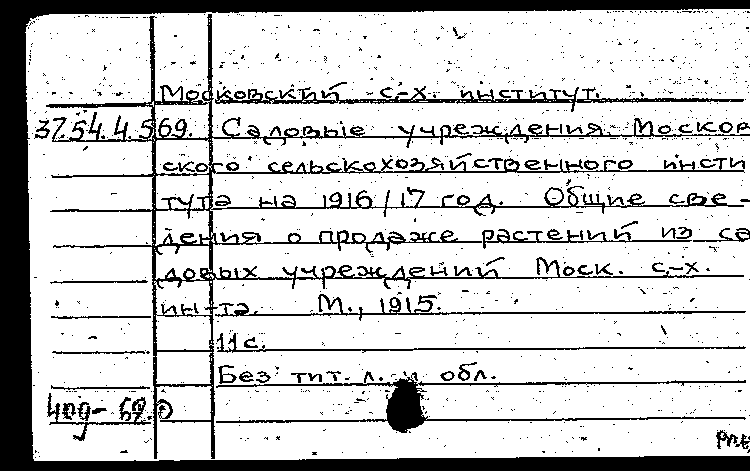 Московский с-х. институт.
37.54.4.569. Садовые учреждения Москов
ского сельскохозяйственного инсти
тута на 1916/17 год. Общие све-
дения о продаже растений из са
довых учреждений Моск. с-х.
ин-та. М., 1915.
11 с.
Без тит. л. и обл.